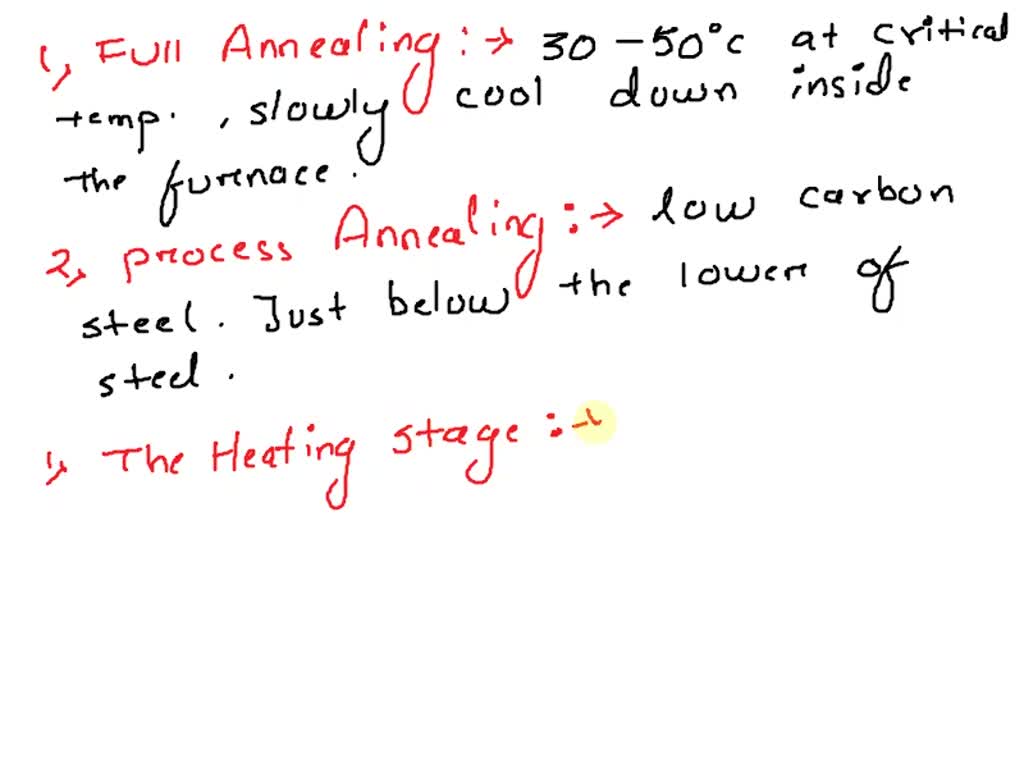 1, Full Annealing :→ 30-50°c at critical
temp. , slowly cool down inside
the furnace.
2, process Annealing :→ low carbon
steel. Just below the lower of
steel.
1, The Heating stage :→